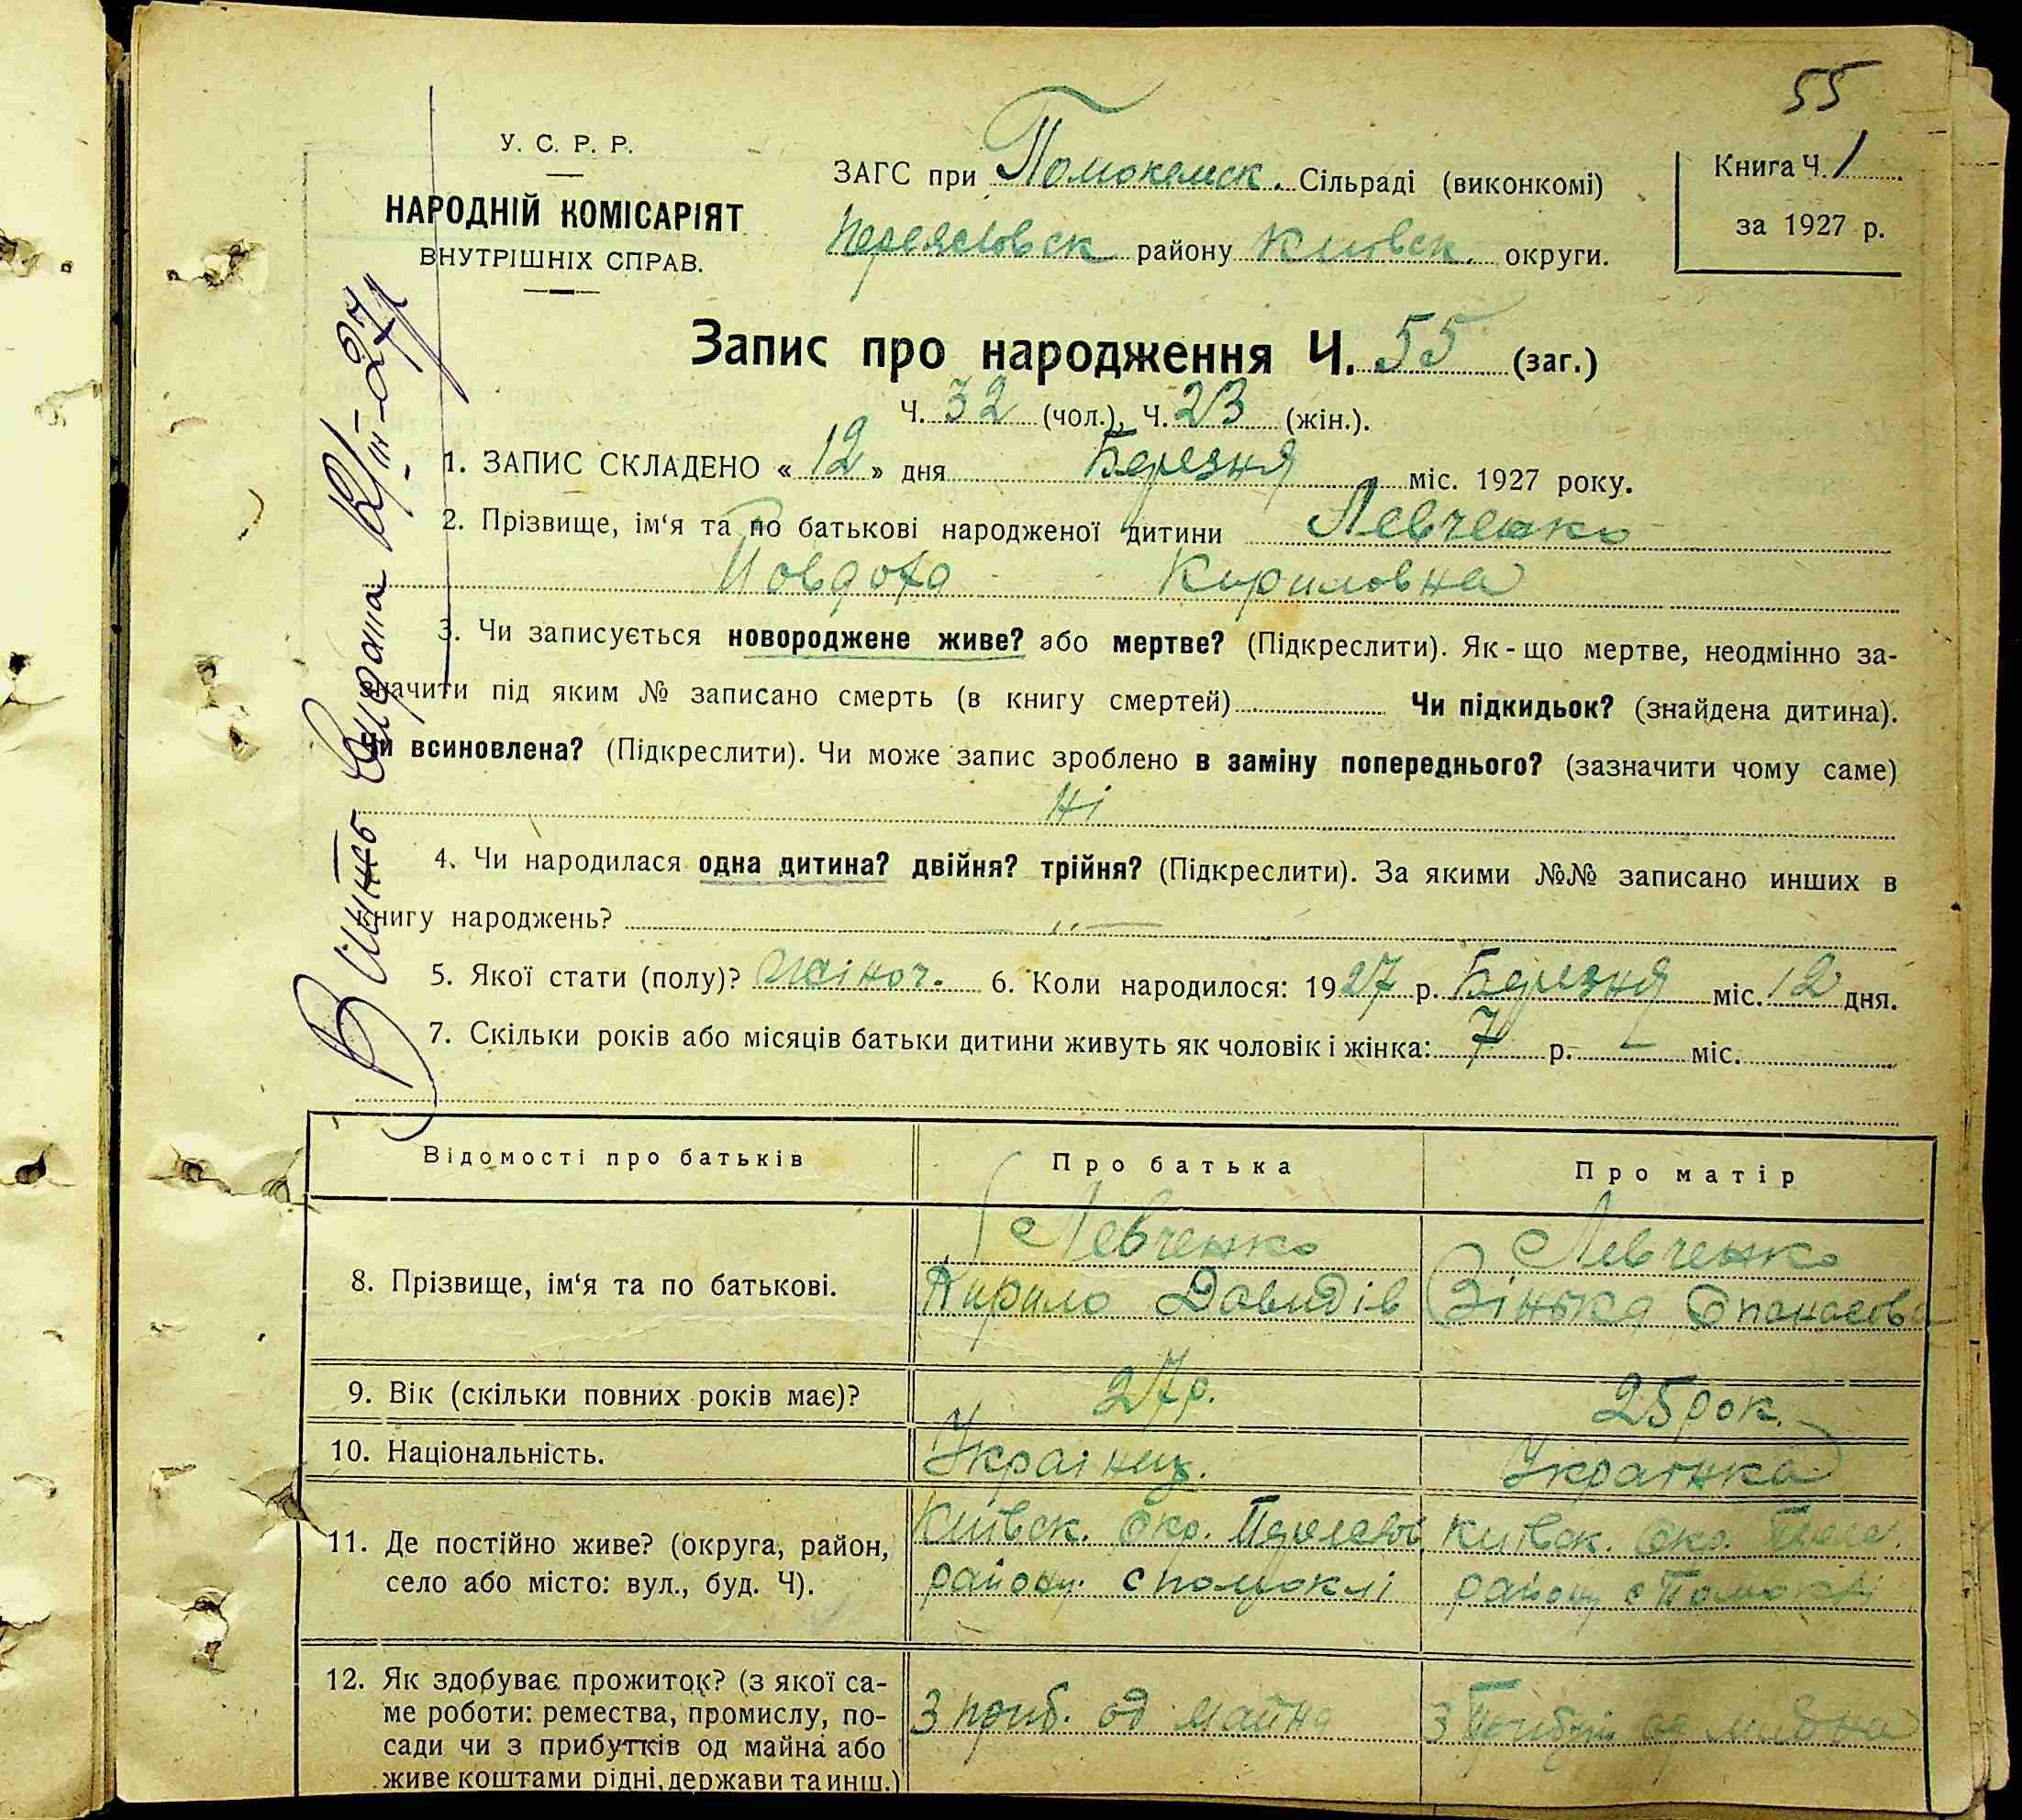 55
У. С. Р. Р.
НАРОДНІЙ КОМІСАРІЯТ
ВНУТРІШНІХ СПРАВ.
ЗАГС при Помокельск. Сільраді (виконкомі)
Переясловск району Київск. округи.
Книга Ч. 1
за 1927 р.
Запис про народження Ч. 55 (заг.)
Ч. 32 (чол.), Ч. 23 (жін.).
1. ЗАПИС СКЛАДЕНО « 12 » дня Березня міс. 1927 року.
2. Прізвище, ім‘я та по батькові народженої дитини Левченко
Йовдоха Кириловна
3. Чи записується новороджене живе? або мертве? (Підкреслити). Як-що мертве, неодмінно за-
значити під яким № записано смерть (в книгу смертей) Чи підкидьок? (знайдена дитина).
Чи всиновлена? (Підкреслити). Чи може запис зроблено в заміну попереднього? (зазначити чому саме)
Ні
4. Чи народилася одна дитина? двійня? трійня? (Підкреслити). За якими №№ записано инших в
книгу народжень? — „ —
5. Якої стати (полу)? жіноч. 6. Коли народилося: 1927 р. Березня міс. 12 дня.
7. Скільки років або місяців батьки дитини живуть як чоловік і жінка: 7 р. — міс.
Витяг видана 12/III-27
Відомості про батьків Про батька Про матір
8. Прізвище, ім‘я та по батькові. Левченко Кирило Давидів Левченко Зінька Опанасова
9. Вік (скільки повних років має)? 27 р. 25 рок.
10. Національність. Українец. Українка
11. Де постійно живе? (округа, район, Київск. Окр. Переяслов. Київск. Окр. Пере.
село або місто: вул., буд. Ч). району с Помоклі району с Помоклі
12. Як здобуває прожиток? (з якої са-
ме роботи: ремества, промислу, по- З приб. од майна З Прибут од майна
сади чи з прибутків од майна або
живе коштами рідні, держави та инш.)